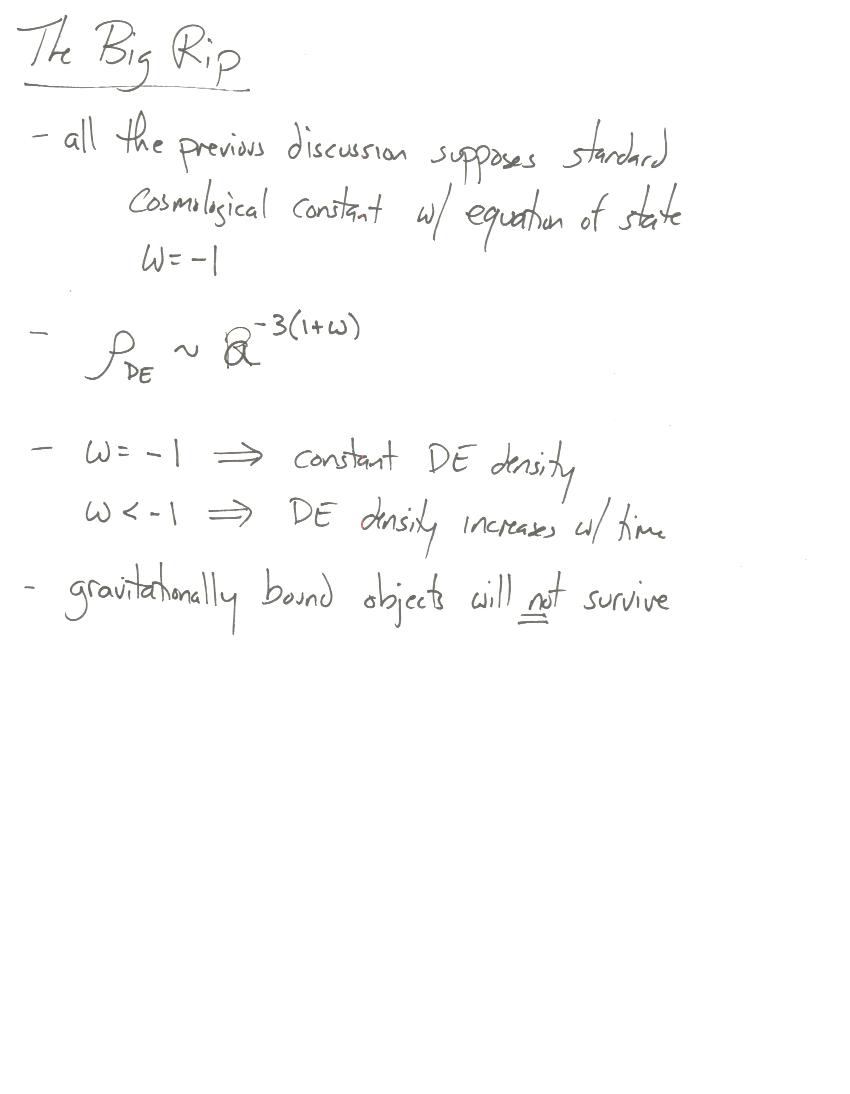 The Big Rip
- all the previous discussion supposes standard
cosmological constant w/ equation of state
w = -1
- ρ_DE ~ a^-3(1+w)
- w = -1 ⇒ constant DE density
w < -1 ⇒ DE density increases w/ time
- gravitationally bound objects will not survive